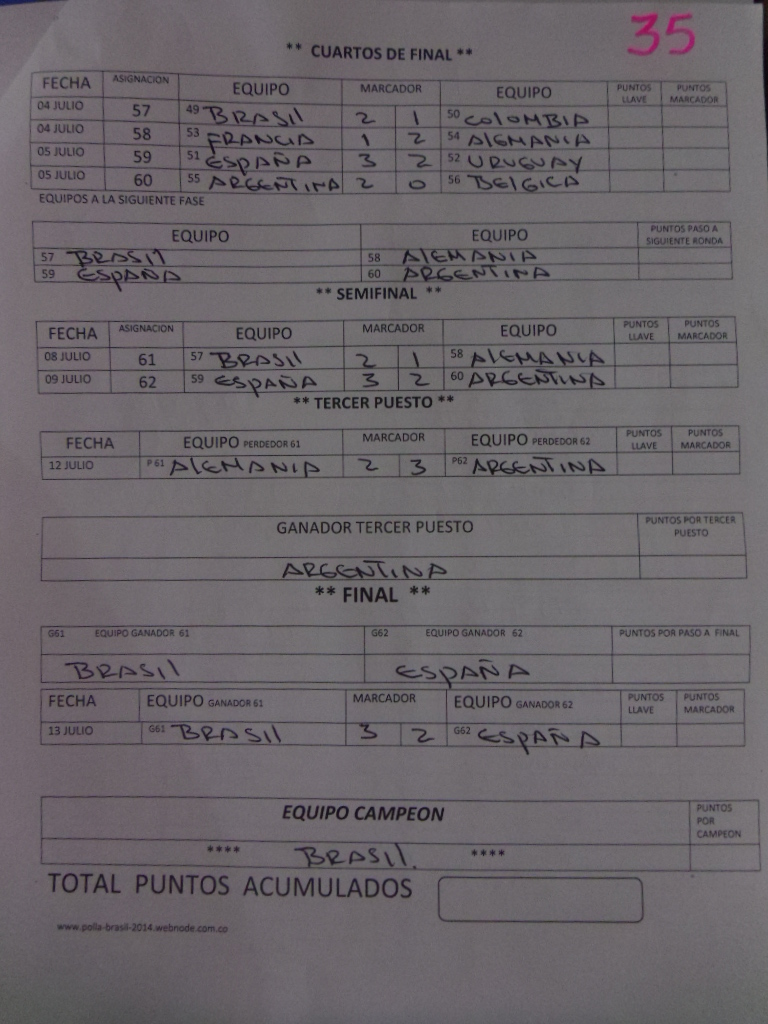 35
** CUARTOS DE FINAL **
FECHA ASIGNACION EQUIPO MARCADOR EQUIPO PUNTOS LLAVE PUNTOS MARCADOR
04 JULIO 57 49 BRASIL 2 1 50 COLOMBIA
04 JULIO 58 53 FRANCIA 1 2 54 ALEMANIA
05 JULIO 59 51 ESPAÑA 3 2 52 URUGUAY
05 JULIO 60 55 ARGENTINA 2 0 56 BELGICA
EQUIPOS A LA SIGUIENTE FASE
EQUIPO EQUIPO PUNTOS PASO A SIGUIENTE RONDA
57 BRASIL 58 ALEMANIA
59 ESPAÑA 60 ARGENTINA
** SEMIFINAL **
FECHA ASIGNACION EQUIPO MARCADOR EQUIPO PUNTOS LLAVE PUNTOS MARCADOR
08 JULIO 61 57 BRASIL 2 1 58 ALEMANIA
09 JULIO 62 59 ESPAÑA 3 2 60 ARGENTINA
** TERCER PUESTO **
FECHA EQUIPO PERDEDOR 61 MARCADOR EQUIPO PERDEDOR 62 PUNTOS LLAVE PUNTOS MARCADOR
12 JULIO P 61 ALEMANIA 2 3 P62 ARGENTINA
GANADOR TERCER PUESTO PUNTOS POR TERCER PUESTO
ARGENTINA
** FINAL **
G61 EQUIPO GANADOR 61 G62 EQUIPO GANADOR 62 PUNTOS POR PASO A FINAL
BRASIL ESPAÑA
FECHA EQUIPO GANADOR 61 MARCADOR EQUIPO GANADOR 62 PUNTOS LLAVE PUNTOS MARCADOR
13 JULIO G61 BRASIL 3 2 G62 ESPAÑA
EQUIPO CAMPEON PUNTOS POR CAMPEON
**** BRASIL. ****
TOTAL PUNTOS ACUMULADOS
www.polla-brasil-2014.webnode.com.co